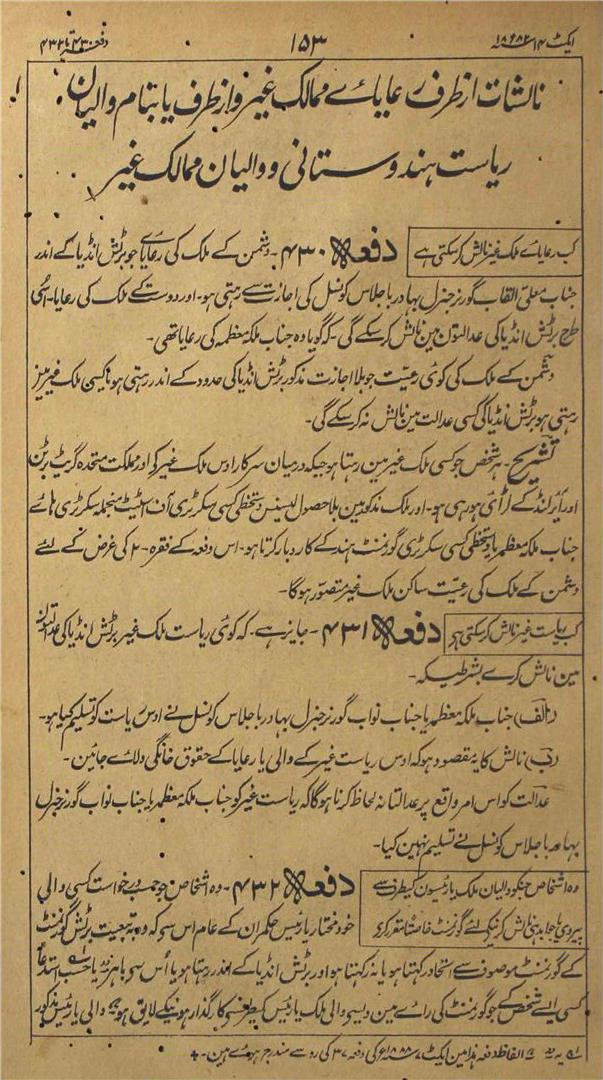 ایکٹ ۱۴ ۱۸۸۲ء ۱۵۳ دفعہ ۴۳۰ تا ۴۳۲
نالشات از طرف رعایاے ممالک غیر و از طرف یا بنام والیان
ریاست ہندوستانی و والیان ممالک غیر
کب رعایاے ملک غیر نالش کرسکتی ہے
دفعہ ۴۳۰۔ دشمن کے ملک کی رعایاے جو برٹش انڈیا کے اندر
جناب معلی القاب گورنر جنرل بہادر با جلاس کونسل کی اجازت سے رہتی ہو۔ اور دوست کے ملک کی رعایا۔ اسی
طرح برٹش انڈیا کی عدالتون مین نالش کرسکے گی۔ کہ گویا وہ جناب ملکہ معظمہ کی رعایا تھی۔
دشمن کے ملک کی کوئی رعیت جو بلا اجازت مذکور برٹش انڈیا کی حدود کے اندر رہتی ہو یا کسی ملک غیر مین
رہتی ہو برٹش انڈیا کی کسی عدالت مین نالش نہ کرسکے گی۔
تشریح۔ ہر شخص جو کسی ملک غیر مین رہتا ہو جبکہ درمیان سرکار اوس ملک غیر کے اور مملکت متحدہ گریٹ برٹن
اور آیرلنڈ کے لڑائی ہو رہی ہو۔ اور ملک مذکور مین بلا حصول لیسنس دستخطی کسی سکرٹری آف اسٹیٹ منجملہ سکرٹری ہائے
جناب ملکہ معظمہ یا دستخطی کسی سکرٹری گورنمنٹ ہند کے کاروبار کرتا ہو۔ اس دفعہ کے فقرہ ۲۔ کی غرض کے لئے
دشمن کے ملک کی رعیت ساکن ملک غیر متصور ہوگا۔
کب ریاست غیر نالش کرسکتی ہے
دفعہ ۴۳۱۔ جایز ہے۔ کہ کوئی ریاست ملک غیر برٹش انڈیا کی عدالتون
مین نالش کرے بشرطیکہ۔
(الف) جناب ملکہ معظمہ یا جناب نواب گورنر جنرل بہادر با جلاس کونسل نے اوس ریاست کو تسلیم کیا ہو۔
(ب) نالش کا یہ مقصود ہو کہ اوس ریاست غیر کے والی یا رعایا کے حقوق خانگی دلائے جائین۔
عدالت کو اس امر واقع پر عدالتانہ لحاظ کرنا ہوگا کہ ریاست غیر کو جناب ملکہ معظمہ یا جناب نواب گورنر جنرل
بہادر با جلاس کونسل نے تسلیم نہین کیا۔
وہ اشخاص جنکو والیان ملک یا رئیسون کیطرف سے
پیروی یا جوابدہی نالش کرنیکے لئے گورنمنٹ خاصتاً مقرر کرے
دفعہ ۴۳۲۔ وہ اشخاص جو حسب درخواست کسی والی
خود مختار یا رئیس حکمران کے عام اس سے کہ وہ بہ تبعیت برٹش گورنمنٹ
کے گورنمنٹ موصوف سے اتحاد رکھتا ہو یا نہ رکھتا ہو اور برٹش انڈیا کے اندر رہتا ہو یا اُس سے باہر یا حسب استدعا
کسی ایسے شخص کے جو گورنمنٹ کی رائے مین ویسے والی ملک یا رئیس کیطرف سے کارگذار ہونیکے لایق ہو والی یا رئیس مذکور
الفاظ دفعہ ہذا مین ایکٹ ۷ ۱۸۸۸ء کی دفعہ ۳۷ کی رو سے مندرج ہوئے ہین۔